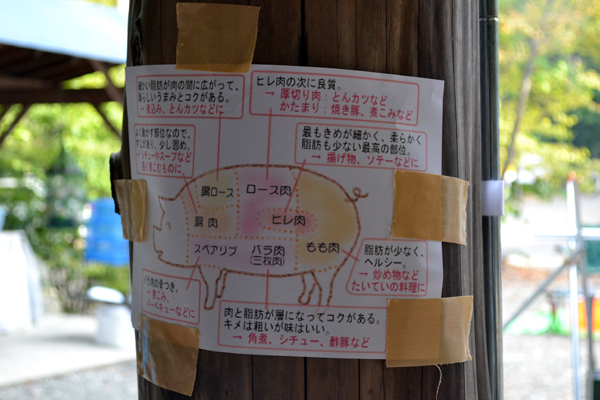 細かい脂肪が肉の間に広がって、
素晴らしいうまみとコクがある。
→ 煮込み、とんカツなどに
ヒレ肉の次に良質。
→ 厚切り肉：とんカツなど
かたまり：焼き豚、煮こみなど
よく動かす部位なので、
すじがあり、少し固め。
→ シチューやスープなど
煮こむものに。
最もきめが細かく、柔らかく
脂肪も少ない最高の部位。
→ 揚げ物、ソテーなどに
肩ロース
ロース肉
肩 肉
ヒレ肉
スペアリブ
バラ肉
(三枚肉)
もも肉
脂肪が少なく、
ヘルシー。
→ 炒め物など
たいていの料理に
バラ肉の骨つき。
→ 煮こみ、
バーベキューなどに
肉と脂肪が層になってコクがある。
キメは粗いが味はいい。
→ 角煮、シチュー、酢豚など